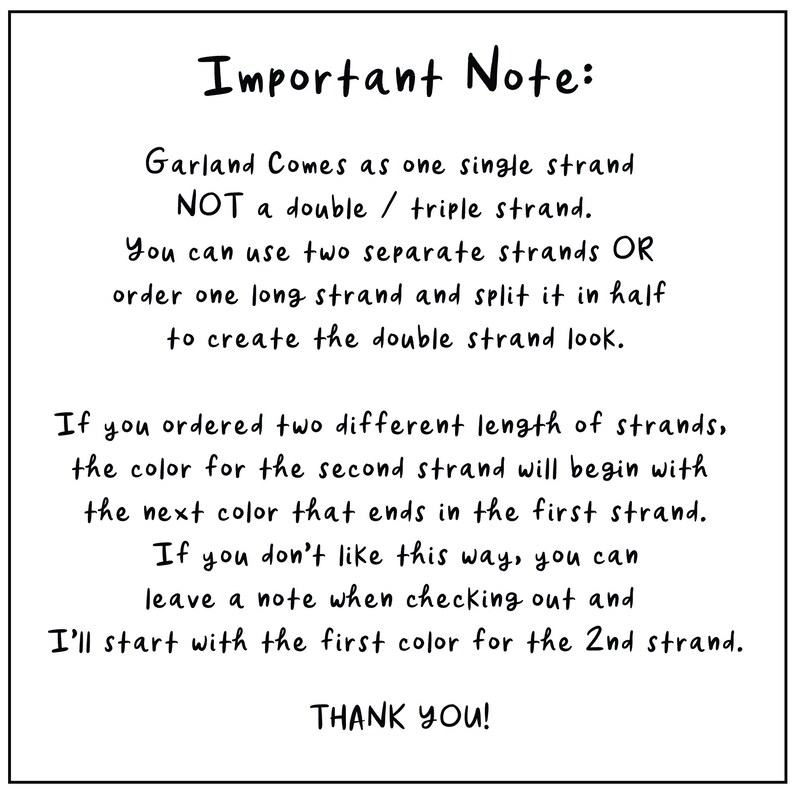 Important Note:
Garland Comes as one single strand
NOT a double / triple strand.
You can use two separate strands OR
order one long strand and split it in half
to create the double strand look.
If you ordered two different length of strands,
the color for the second strand will begin with
the next color that ends in the first strand.
If you don't like this way, you can
leave a note when checking out and
I'll start with the first color for the 2nd strand.
THANK YOU!